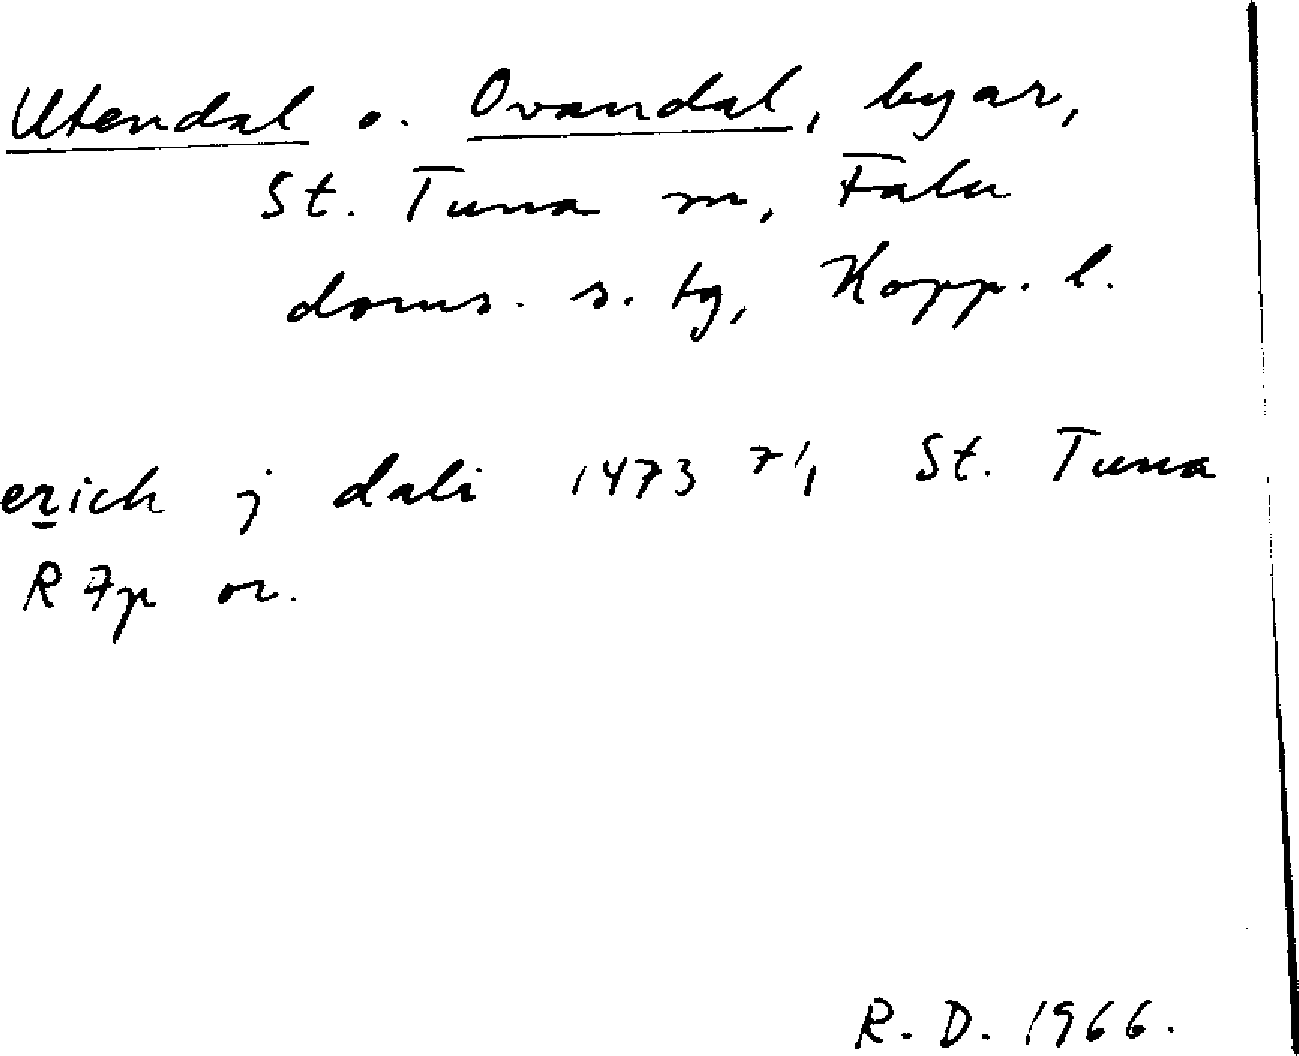 Utendal o. Ovandal, byar,
St. Tuna sn, Falu
doms. s. tg, Kopp. l.
erich j dali 1473 7/1 St. Tuna
R Ap or.
R. D. 1966.